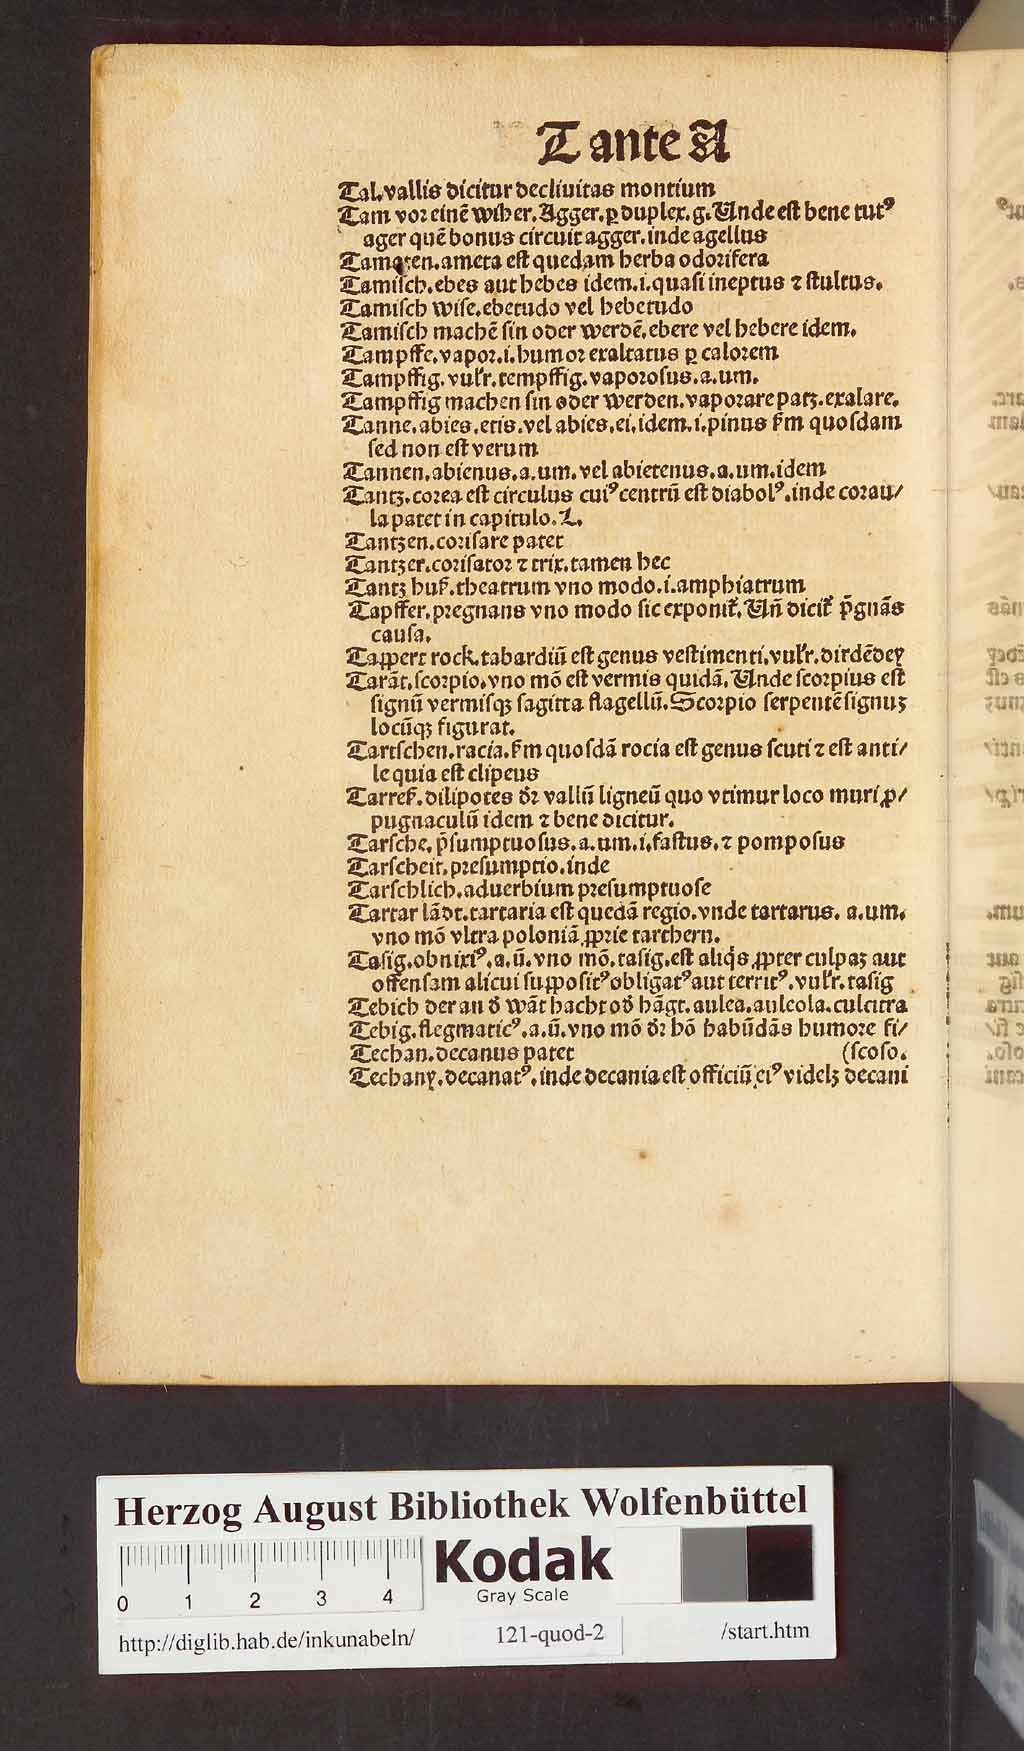 T ante A
Tal.vallis dicitur decliuitas montium
Tam vor einē wiher.Agger.ꝑ duplex.g.Unde est bene tutꝰ
ager quē bonus circuit agger.inde agellus
Tamaren.ameta est quedam herba odorifera
Tamisch.ebes aut hebes idem.i.quasi ineptus ⁊ stultus.
Tamisch wise.ebetudo vel hebetudo
Tamisch machē sin oder werdē.ebere vel hebere idem.
Tampffe.vapor.i.humor exaltatus ꝑ calorem
Tampffig.vulr.tempffig.vaporosus.a.um.
Tampffig machen sin oder werden.vaporare patꝫ.exalare.
Tanne.abies.etis.vel abies.ei.idem.i.pinus ẜm quosdam
sed non est verum
Tannen.abienus.a.um.vel abietenus.a.um.idem
Tantz.corea est circulus cuiꝰ centrū est diabolꝰ.inde corau/
la patet in capitulo.L.
Tantzen.corisare patet
Tantzer.corisator ⁊ trix.tamen hec
Tantz huß.theatrum vno modo.i.amphiatrum
Tapffer.pregnans vno modo sic exponit᷑.Uñ dicit᷑ p̄gnās
causa.
Tappert rock.tabardiū est genus vestimenti.vulr.dirdēdey
Tarāt.scorpio.vno mō est vermis quidā.Unde scorpius est
signū vermisqꝫ sagitta flagellū.Scorpio serpentē signuꝫ
locūqꝫ figurat.
Tartschen.racia.ẜm quosdā rocia est genus scuti ⁊ est anti/
le quia est clipeus
Tarreß.dilipotes dr̄ vallū ligneū quo vtimur loco muri ꝓ/
pugnaculū idem ⁊ bene dicitur.
Tarsche.p̄sumptuosus.a.um.i.fastus.⁊ pomposus
Tarscheit.presumptio.inde
Tarschlich.aduerbium presumptuose
Tartar lādt.tartaria est quedā regio.vnde tartarus. a.um.
vno mō vltra poloniā ꝓprie tarthern.
Tasig.obnixiꝰ.a.ū.vno mō.tasig.est aliq̇s ꝓpter culpaꝫ aut
offensam alicui suppositꝰ obligatꝰ aut territꝰ.vulr.tasig
Tebich der an ð wāt hacht oð hāgt.aulea.auleola.culcitra
Tebig.flegmaticꝰ.a.ū.vno mō dr̄ hō habūdās humore fi/
Techan.decanus patet (scoso.
Techany.decanatꝰ.inde decania est officiū eiꝰ videlꝫ decani
Herzog August Bibliothek Wolfenbüttel
0 1 2 3 4
Kodak
Gray Scale
http://diglib.hab.de/inkunabeln/ 121-quod-2 /start.htm